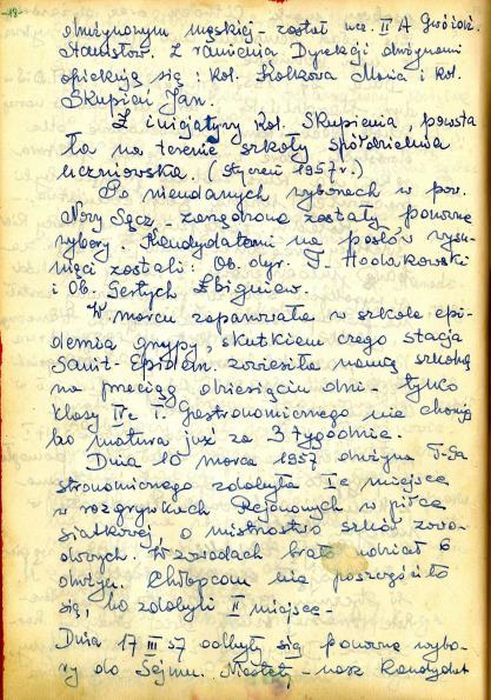 -19-
drużynowym męskiej - został ucz. II A Gwóźdź
Stanisław. Z ramienia Dyrekcji drużynami
opiekują się: kol. Kolkowa Maria i kol.
Skupień Jan.
Z inicjatywy Kol. Skupienia, powsta
ła na terenie szkoły spółdzielnia
uczniowska. (Styczeń 1957 r.)
Po nieudanych wyborach w pow.
Nowy Sącz - zarządzone zostały ponowne
wybory. Kandydatami na posłów wysu-
nięci zostali: Ob. dyr. T.
i Ob. Gertych Zbigniew.
W marcu zapanowała w szkole epi-
demia grypy, skutkiem czego stacja
Sanit-Epidem. zawiesiła naukę szkolną
na przeciąg dziesięciu dni - tylko
klasy IV T. Gastronomicznego nie chorują
bo matura już za 3 tygodnie.
Dnia 10 marca 1957 drużyna T-Ga
stronomicznego zdobyła I-e miejsce
w rozgrywkach Rejonowych w piłce
siatkowej, o mistrostwo szkół zawo-
dowych. W zawodach brało udział 6
drużyn. Chłopcom nie poszczęściło
się, bo zdobyli II miejsce -
Dnia 17 III 57 odbyły się ponowne wybo-
ry do Sejmu. Niestety - nasz kandydat